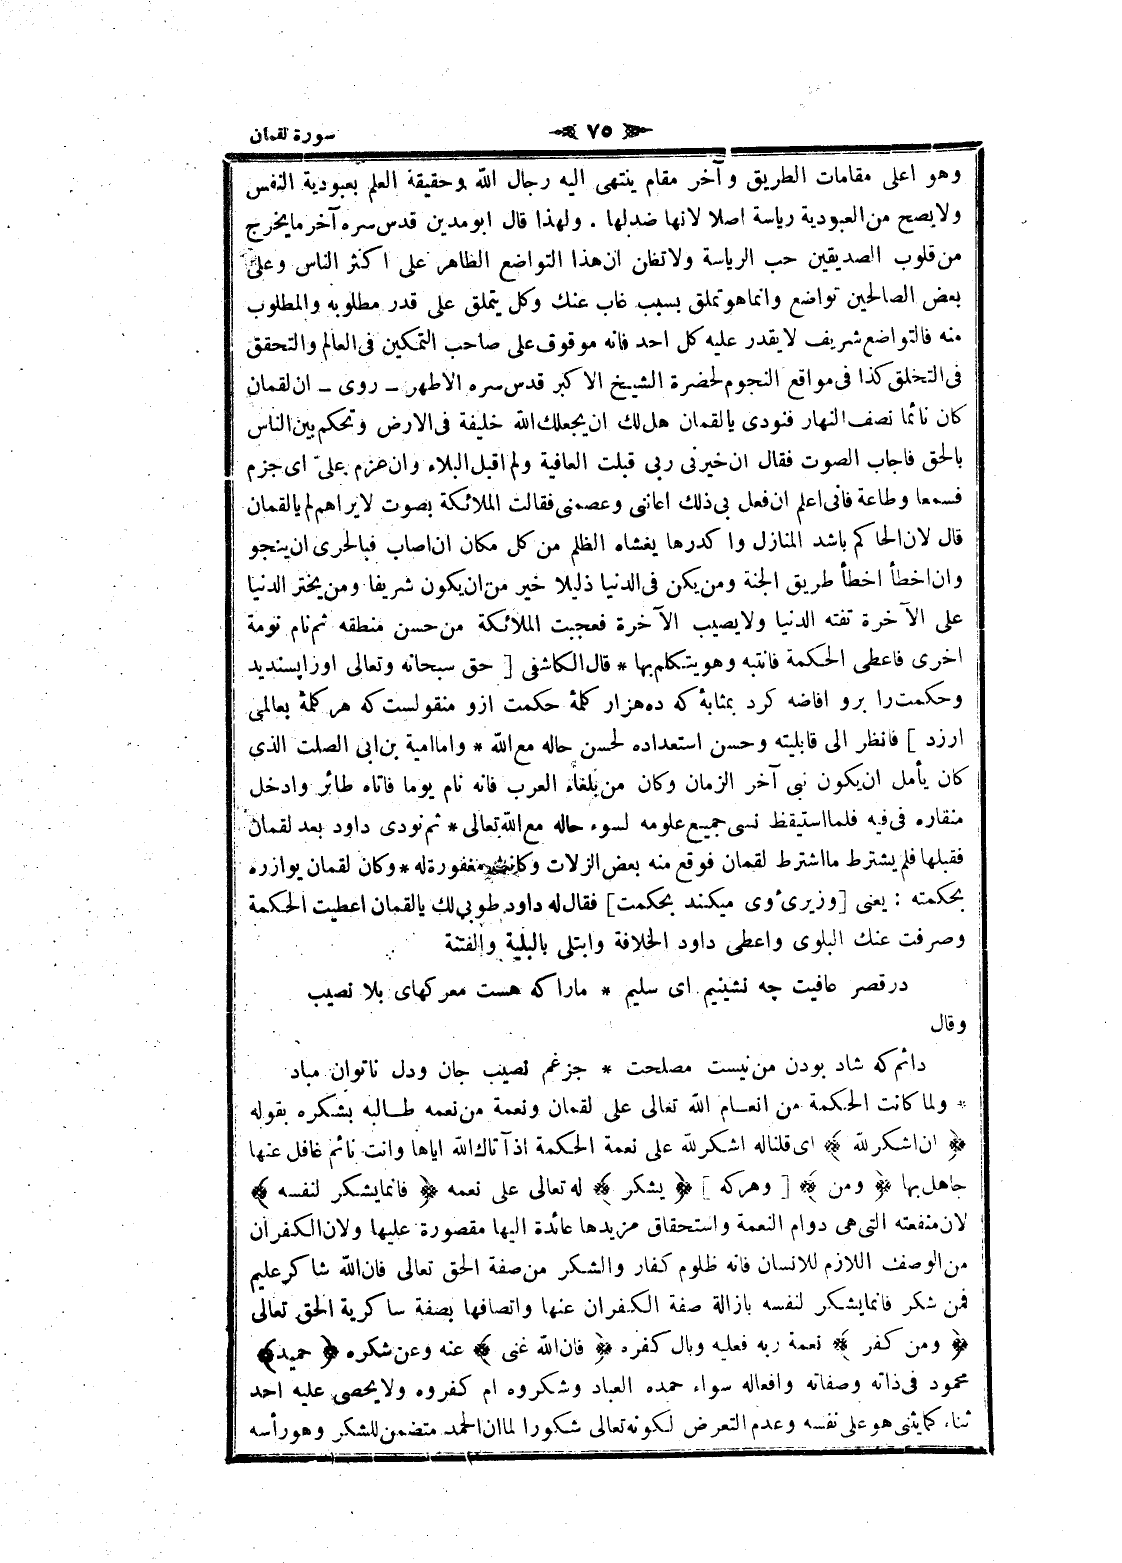 سورة لقمان
٧٥
وهو اعلى مقامات الطريق وآخر مقام ينتهى اليه رجال الله وحقيقة العلم بعبودية النفس
ولا يصح من العبودية رياسة اصلا لانها ضد لها . ولهذا قال ابو مدين قدس سره آخر ما يخرج
من قلوب الصديقين حب الرياسة ولا تظن ان هذا التواضع الظاهر على اكثر الناس وعلى
بعض الصالحين تواضع وانما هو تملق بسبب غاب عنك وكل يتملق على قدر مطلوبه والمطلوب
منه فالتواضع شريف لا يقدر عليه كل احد فانه موقوف على صاحب التمكين فى العالم والتحقق
فى التخلق كذا فى مواقع النجوم لحضرة الشيخ الاكبر قدس سره الاطهر ــ روى ــ ان لقمان
كان نائما نصف النهار فنودى يالقمان هل لك ان يجعلك الله خليفة فى الارض وتحكم بين الناس
بالحق فاجاب الصوت فقال ان خيرنى ربى قبلت العافية ولم اقبل البلاء وان عزم علىّ اى جزم
فسمعا وطاعة فانى اعلم ان فعل بى ذلك اعاننى وعصمنى فقالت الملائكة بصوت لا يراهم لم يالقمان
قال لان الحاكم باشد المنازل واكدرها يغشاه الظلم من كل مكان ان اصاب فبالحرى ان ينجو
وان اخطأ اخطأ طريق الجنة ومن يكن فى الدنيا ذليلا خير من ان يكون شريفا ومن يختر الدنيا
على الآخرة تفته الدنيا ولا يصيب الآخرة فعجبت الملائكة من حسن منطقه ثم نام نومة
اخرى فاعطى الحكمة فانتبه وهو يتكلم بها * قال الكاشفى [ حق سبحانه وتعالى اورا پسنديد
وحكمت را برو افاضه كرد بمثابۀ كه ده هزار كلمۀ حكمت ازو منقولست كه هر كلمۀ بعالمى
ارزد ] فانظر الى قابليته وحسن استعداده لحسن حاله مع الله * واما امية بن ابى الصلت الذى
كان يأمل ان يكون نبى آخر الزمان وكان من بلغاء العرب فانه نام يوما فاتاه طائر وادخل
منقاره فى فيه فلما استيقظ نسى جميع علومه لسوء حاله مع الله تعالى * ثم نودى داود بعد لقمان
فقبلها فلم يشترط ما اشترط لقمان فوقع منه بعض الزلات وكانت مغفورة له * وكان لقمان يوازره
بحكمته : يعنى [ وزيرىء وى ميكند بحكمت ] فقال له داود طوبى لك يالقمان اعطيت الحكمة
وصرفت عنك البلوى واعطى داود الخلافة وابتلى بالبلية والفتنة
در قصر عافيت چه نشينيم اى سليم * مارا كه هست معركهاى بلا نصيب
وقال
دائم كه شاد بودن من نيست مصلحت * جز غم نصيب جان ودل ناتوان مباد
* ولما كانت الحكمة من انعام الله تعالى على لقمان ونعمة من نعمه طالبه بشكره بقوله
﴿ ان اشكر لله ﴾ اى قلنا له اشكر لله على نعمة الحكمة اذ آتاك الله اياها وانت نائم غافل عنها
جاهل بها ﴿ ومن ﴾ [ وهركه ] ﴿ يشكر ﴾ له تعالى على نعمه ﴿ فانما يشكر لنفسه ﴾
لان منفعته التى هى دوام النعمة واستحقاق مزيدها عائدة اليها مقصورة عليها ولان الكفران
من الوصف اللازم للانسان فانه ظلوم كفار والشكر من صفة الحق تعالى فان الله شاكر عليم
فمن شكر فانما يشكر لنفسه بازالة صفة الكفران عنها واتصافها بصفة ساكرية الحق تعالى
﴿ ومن كفر ﴾ نعمة ربه فعليه وبال كفره ﴿ فان الله غنى ﴾ عنه وعن شكره ﴿ حميد ﴾
محمود فى ذاته وصفاته وافعاله سواء حمده العباد وشكروه ام كفروه ولا يحصى عليه احد
ثناء كما يثنى هو على نفسه وعدم التعرض لكونه تعالى شكورا لما ان الحمد متضمن للشكر وهو رأسه